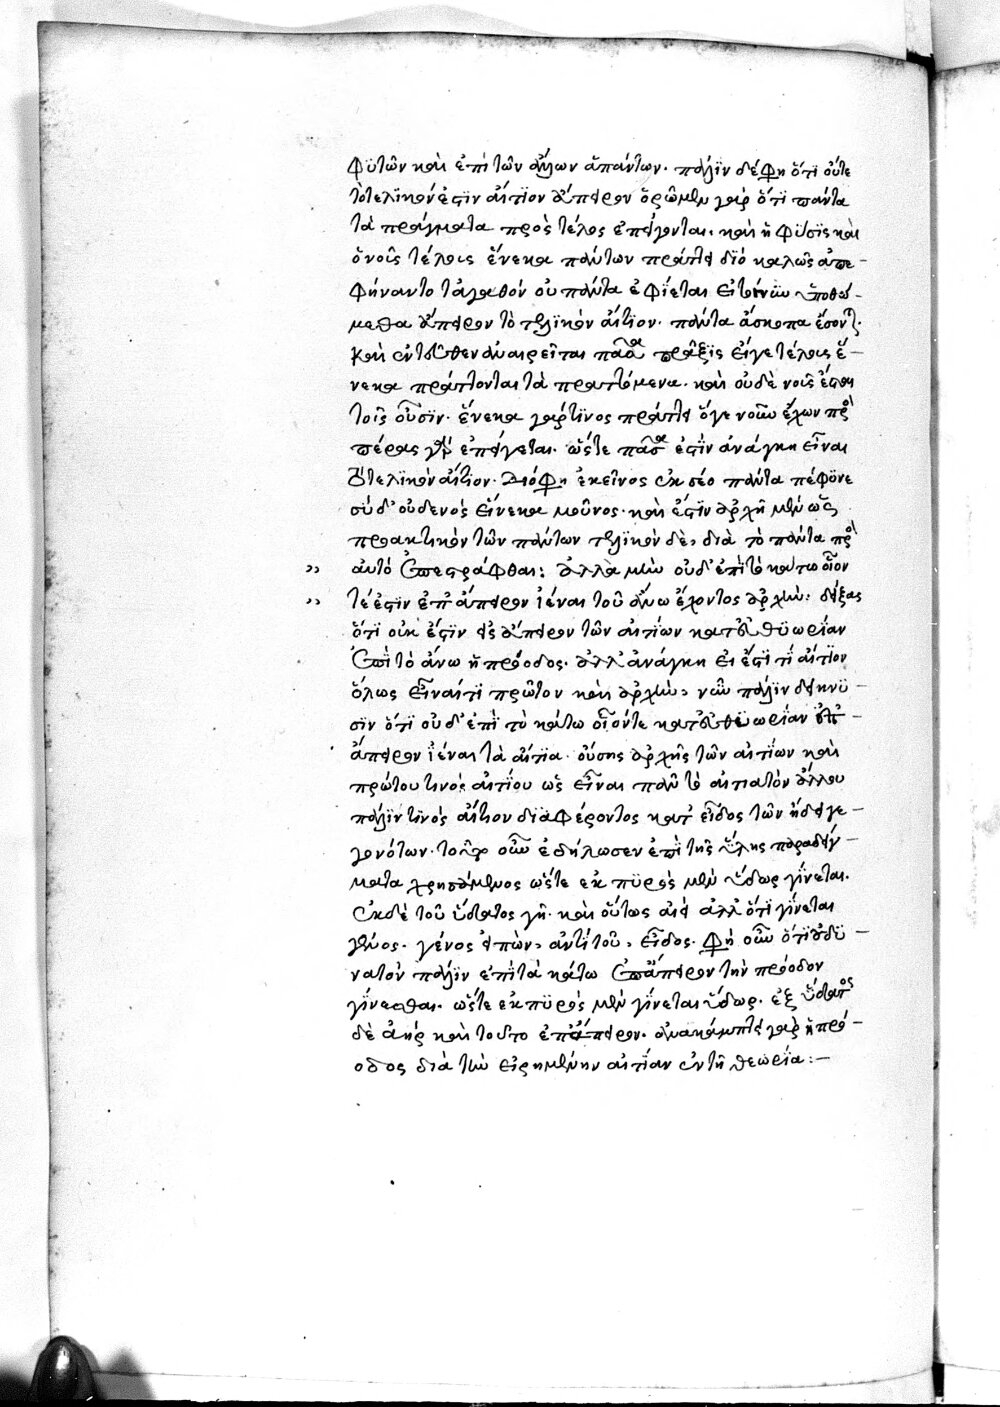 φϋτῶν καὶ ἐπὶ τῶν ἄλλων ἁπάντων. πάλϊν δέ φη ὅτι οὔτε
τὸ τελϊκόν ἐστϊν αἴτϊον ἄπειρον ὁρῶμεν γάρ ὅτϊ πάντα
τὰ πράγματα πρὸς τέλος ἐπείγονται. καὶ ἡ φύσϊς καὶ
ὁ νοῦς τέλους ἕνεκα πάντων πράττει διό καλῶς ἀπε-
φήναντο τἀγαθόν οὗ πάντα ἐφίεται εἰ τοίνυν ὑποθώ-
μεθα ἄπειρον τὸ τελϊκὸν αἴτϊον. πάντα ἄσκοπα ἔσονται.
καὶ ἐντεῦθεν ἀναιρεῖται πᾶσα πρᾶξϊς εἴγε τέλους ἕ-
νεκα πράττονται τὰ πραττόμενα. καὶ οὐδὲ νοῦς ἔσται
τοῖς οὖσϊν. ἕνεκα γάρ τϊνος πράττει ὅγε νοῦν ἔχων πρὸς
πέρας γὰρ ἐπείγεται. ὥστε πᾶσα ἐστϊν ἀνάγκη εἶναι
τελϊκὸν αἴτϊον. διό φη ἐκεῖνος ἐκ σέο πάντα πέφϋνε
σύ δ' οὐδενός εἵνεκα μοῦνος. καὶ ἔστϊν ἀρχὴ μὲν ὡς
πρακτικὸν τῶν πάντων τελϊκὸν δὲ, διὰ τὸ πάντα πρὸς
αὐτό ἐπεστράφθαι: ἀλλὰ μὴν οὐδ' ἐπὶ τὸ κάτω οἷον
τέ ἐστϊν ἐπ' ἄπειρον ἰέναι τοῦ ἄνω ἔχοντος ἀρχήν: δείξας
ὅτϊ οὐκ ἔστϊν εἰς ἄπειρον τῶν αἰτίων κατ' εὐθϋωρίαν
ἐπὶ τὸ ἄνω ἡ πρόοδος. ἀλλ' ἀνάγκη εἰ ἔστϊ τὶ αἴτϊον
ὅλως εἶναί τϊ πρῶτον καὶ ἀρχήν, νῦν πάλϊν δείκνϋ-
σϊν ὅτϊ οὐδ' ἐπὶ τὸ κάτω οἷόντε κατ' εὐθϋωρίαν ἐπ'
ἄπειρον ἰέναι τὰ αἴτϊα. οὔσης ἀρχῆς τῶν αἰτίων καὶ
πρώτου τινος αἰτίου ὡς εἶναι πᾶν τὸ αἰτιατὸν ἄλλου
πάλϊν τϊνὸς αἴτιον διϊαφέροντος κατ' εἶδος τῶν ἤδη γε-
γονότων. τοῦτο οὖν ἐδήλωσεν ἐπὶ τῆς ὕλης παραδείγ-
ματα χρησάμενος ὥστε ἐκ πϋρὸς μὲν ὕδωρ γίνεται.
ἐκ δὲ τοῦ ὕδατος γῆ. καὶ οὕτως ἀεὶ ἀλλ' ὅτϊ γίνεται
γένος. γένος εἰπὼν, ἀντὶ τοῦ, εἶδος. φη οὖν ὅτϊ ἀδϋ-
νατὸν πάλϊν ἐπὶ τὰ κάτω ἐπ' ἄπειρον τὴν πρόοδον
γίνεσθαι. ὥστε ἐκ πϋρὸς μὲν γίνεται ὕδωρ. ἐξ ὕδατος
δὲ ἀήρ καὶ τοῦτο ἐπ' ἄπειρον. ἀνακάμπτει γὰρ ἡ πρό-
οδος διὰ τὴν εἰρημένην αἰτίαν ἐν τῇ θεωρία:-